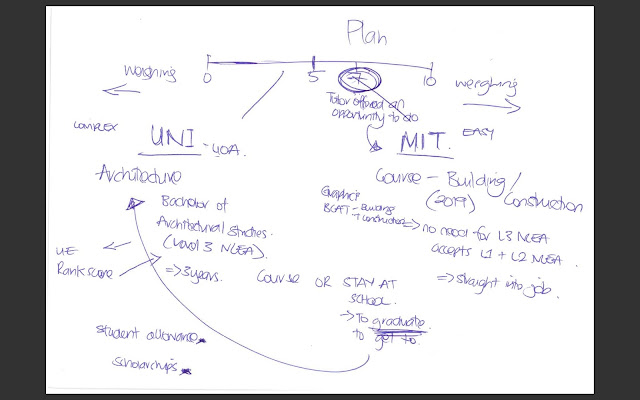 Plan
weighing
0
5
7
10
weighing
Tutor offered an
opportunity to do
COMPLEX
UNI - UOA.
MIT.
EASY
Architecture
Course - Building/
(2019) Construction
Bachelor of
Architectural Studies
(Level 3 NCEA).
=> 3 years.
Graphics
BCAT - Building
+ Construction
=> no need for L3 NCEA
accepts L1 + L2 NCEA
=> straight into job.
UE
Rank score
COURSE OR STAY AT
SCHOOL.
-> To graduate
to get to
Student allowance
Scholarships